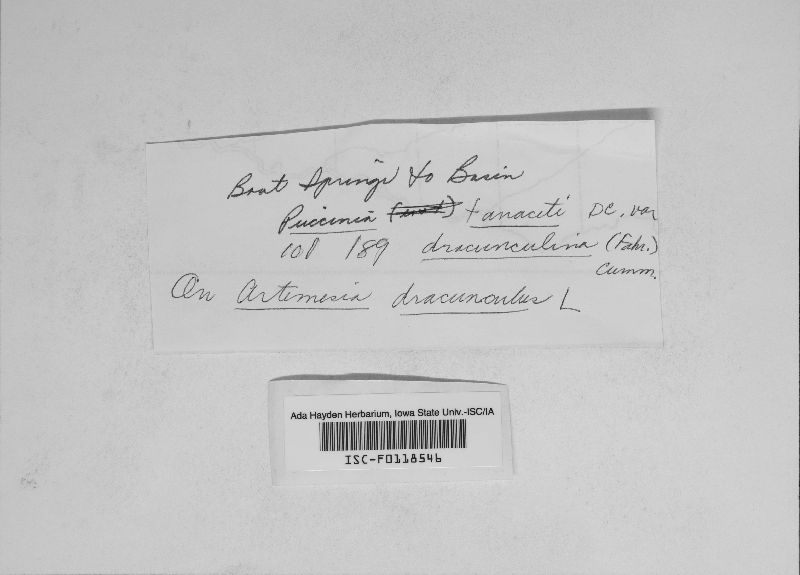 Boot Springs to Basin
Puccinia tanaceti DC. var
101 189 dracunculina (Fahr.)
Cumm.
On Artemesia dracunculus L
Ada Hayden Herbarium, Iowa State Univ.-ISC/IA
ISC-F0118546